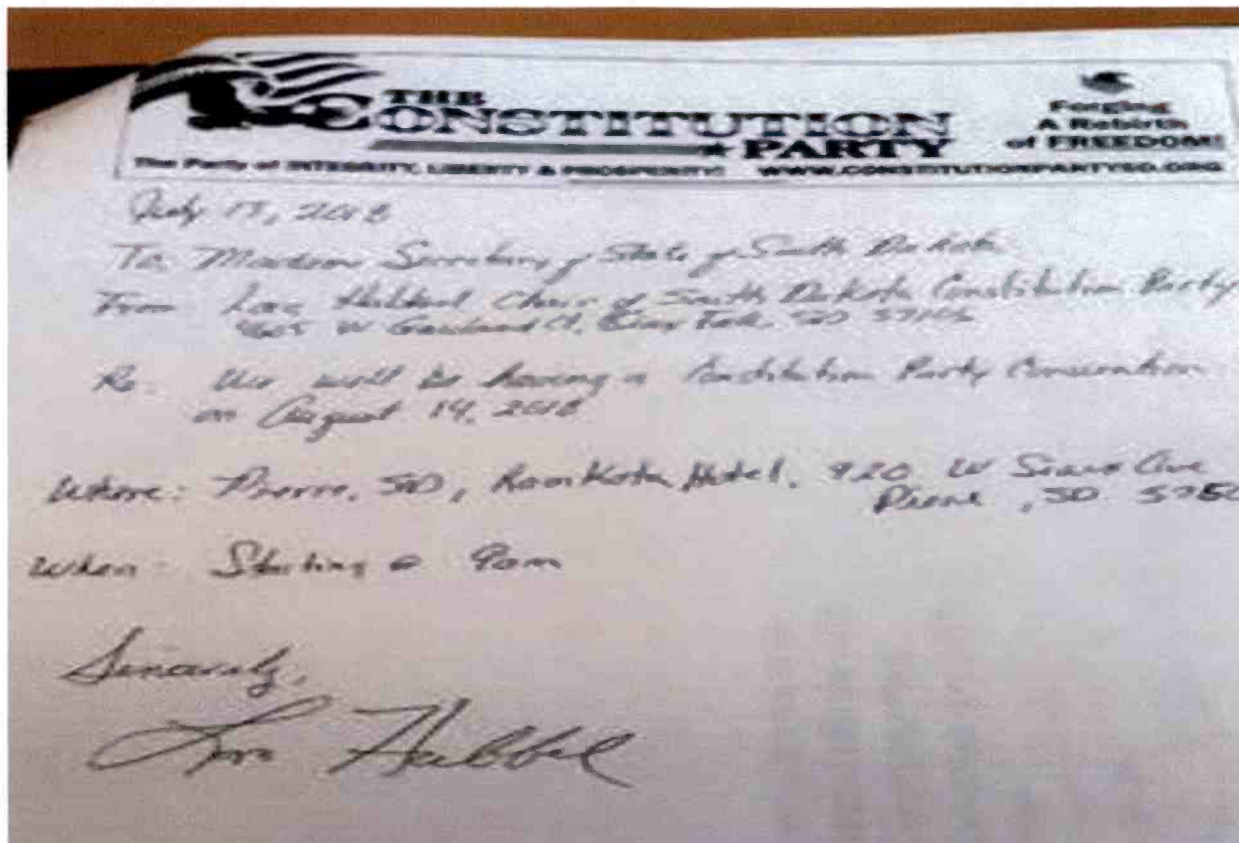 THE
CONSTITUTION
PARTY
Forging
A Rebirth
of FREEDOM!
The Party of INTEGRITY, LIBERTY & PROSPERITY! WWW.CONSTITUTIONPARTYSD.ORG
July 17, 2018
To: Madam Secretary of State of South Dakota
From Lora Hubbel Chair of South Dakota Constitution Party
W Ct, SD
Re: We will be having a Constitution Party Convention
on August 14, 2018
Where: Pierre, SD, RamKota Hotel, 920 W Sioux Ave
Pierre, SD
When: Starting @ 9am
Sincerely,
Lora Hubbel